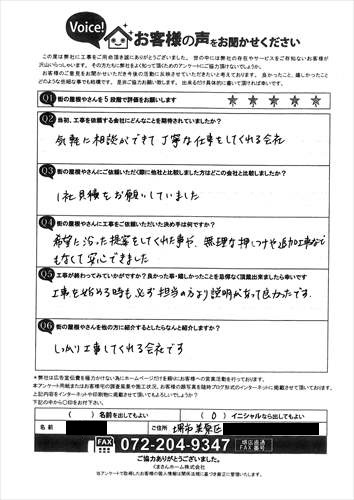 Voice!
お客様の声をお聞かせください
この度は弊社に工事をご用命頂き誠にありがとうございました。世の中には弊社の存在やサービスをご存知ないお客様が
沢山いらっしゃいます。その方たちに弊社をよく知って頂くためのアンケートにご協力頂けないでしょうか。
お客様のご意見をお聞かせいただき今後の活動に反映させていただきたいと考えております。良かったこと、嬉しかったこと
どのような些細な事でも結構です。是非ご協力お願い致します。出来るだけ具体的に書いて頂ければ幸いです。
Q1 街の屋根やさんを5段階で評価をお願いします ★ ★ ★ ★ ★
Q2 当初、工事を依頼する会社にどんなことを期待されていましたか?
気軽に相談ができて丁寧な仕事をしてくれる会社
Q3 街の屋根やさんにご依頼いただく際に他社と比較しました方はどこの会社と比較しましたか?
1社見積をお願いしていました
Q4 街の屋根やさんに工事をご依頼いただいた決め手は何ですか?
希望に沿った提案をしてくれた事や、無理な押しつけや追加工事なども
なくて安心できました
Q5 工事が終わってみていかがですか?良かった事・嬉しかったことを忌憚なく頂戴出来ましたら幸いです
工事を始める時も必ず担当の方より説明があって良かったです.
Q6 街の屋根やさんを他の方に紹介するとしたらなんと紹介しますか?
しっかり工事してくれる会社です
*弊社は広告宣伝費を極力かけない為にホームページだけを頼りにお客様への営業活動を行っております。
本アンケート用紙またはお客様宅の調査風景や施工状況、お客様の顔写真を随時ブログ形式でインターネットに掲載させて頂いております。
上記内容をインターネットや印刷物に掲載させて頂いても宜しいでしょうか?
下記の中から〇印をお付け下さい。
( )名前を出してもよい ( O )イニシャルなら出してもよい
名前 ご住所 堺市美原区
FAX 072-204-9347 堺広直通 FAX番号
ご協力ありがとうございました。
くまさんホーム株式会社
当アンケートで取得したお客様の個人情報は関係法規に基づき厳正に管理いたします。